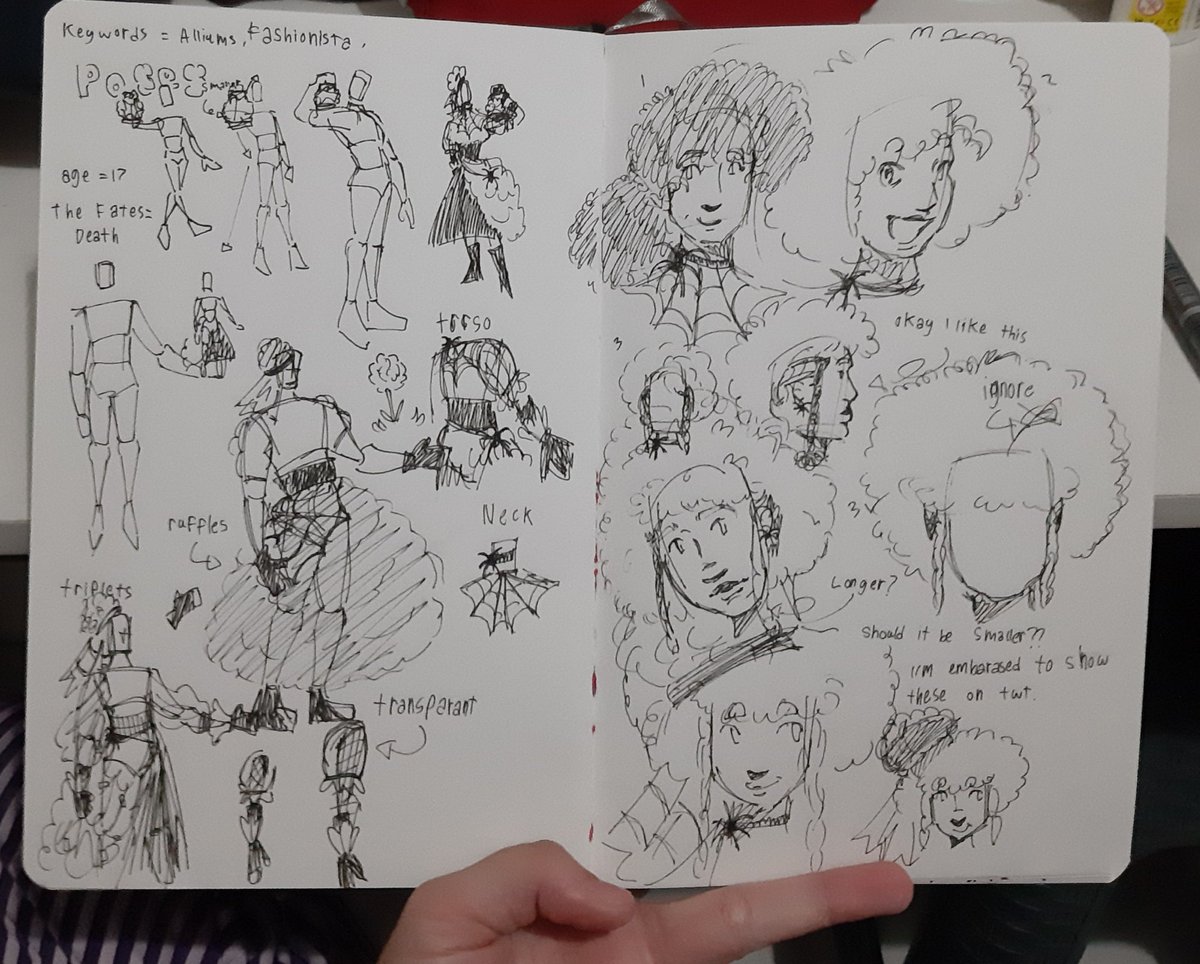 Keywords = Alliums, Fashionista,
Poses
age = 17
The Fates =
Death
torso
ruffles
Neck
triplets
transparant
1
2
okay I like this
3
ignore
3
Longer?
Should it be smaller??
I'm embarased to show
these on twt.